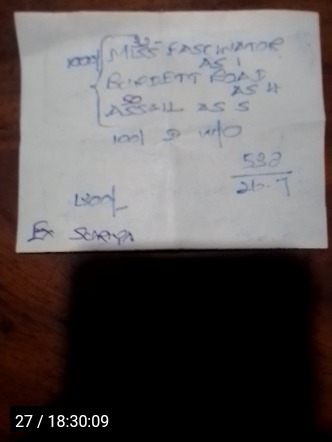 32-
1000/ MISS FASCINATOR
AS 1
BURDETT ROAD
AS 4
50
ASSAIL AS 5
100/ D W/O
538
26.7
1300/-
Ex
27 / 18:30:09